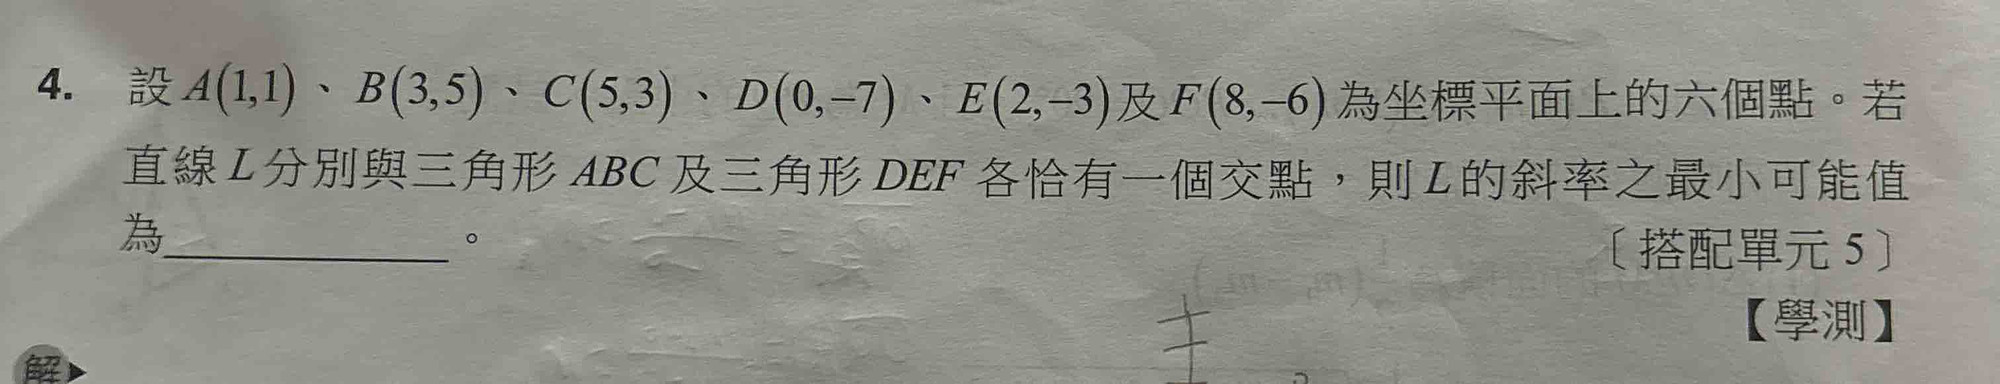 4. 設 A(1,1)、B(3,5)、C(5,3)、D(0,−7)、E(2,−3)及 F(8,−6)為坐標平面上的六個點。若
直線 L 分別與三角形 ABC 及三角形 DEF 各恰有一個交點，則 L 的斜率之最小可能值
為__________。
〔搭配單元 5〕
【學測】
解▶